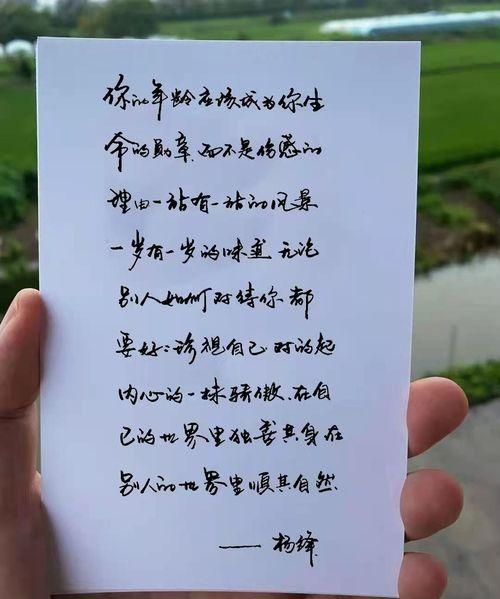 你的年龄应该成为你生
命的勋章,而不是伤感的
理由一站有一站的风景
一岁有一岁的味道 无论
别人如何对待你 都
要好:珍视自己 对的起
内心的一抹骄傲.在自
己的世界里独善其身在
别人的世界里顺其自然.
——杨绛